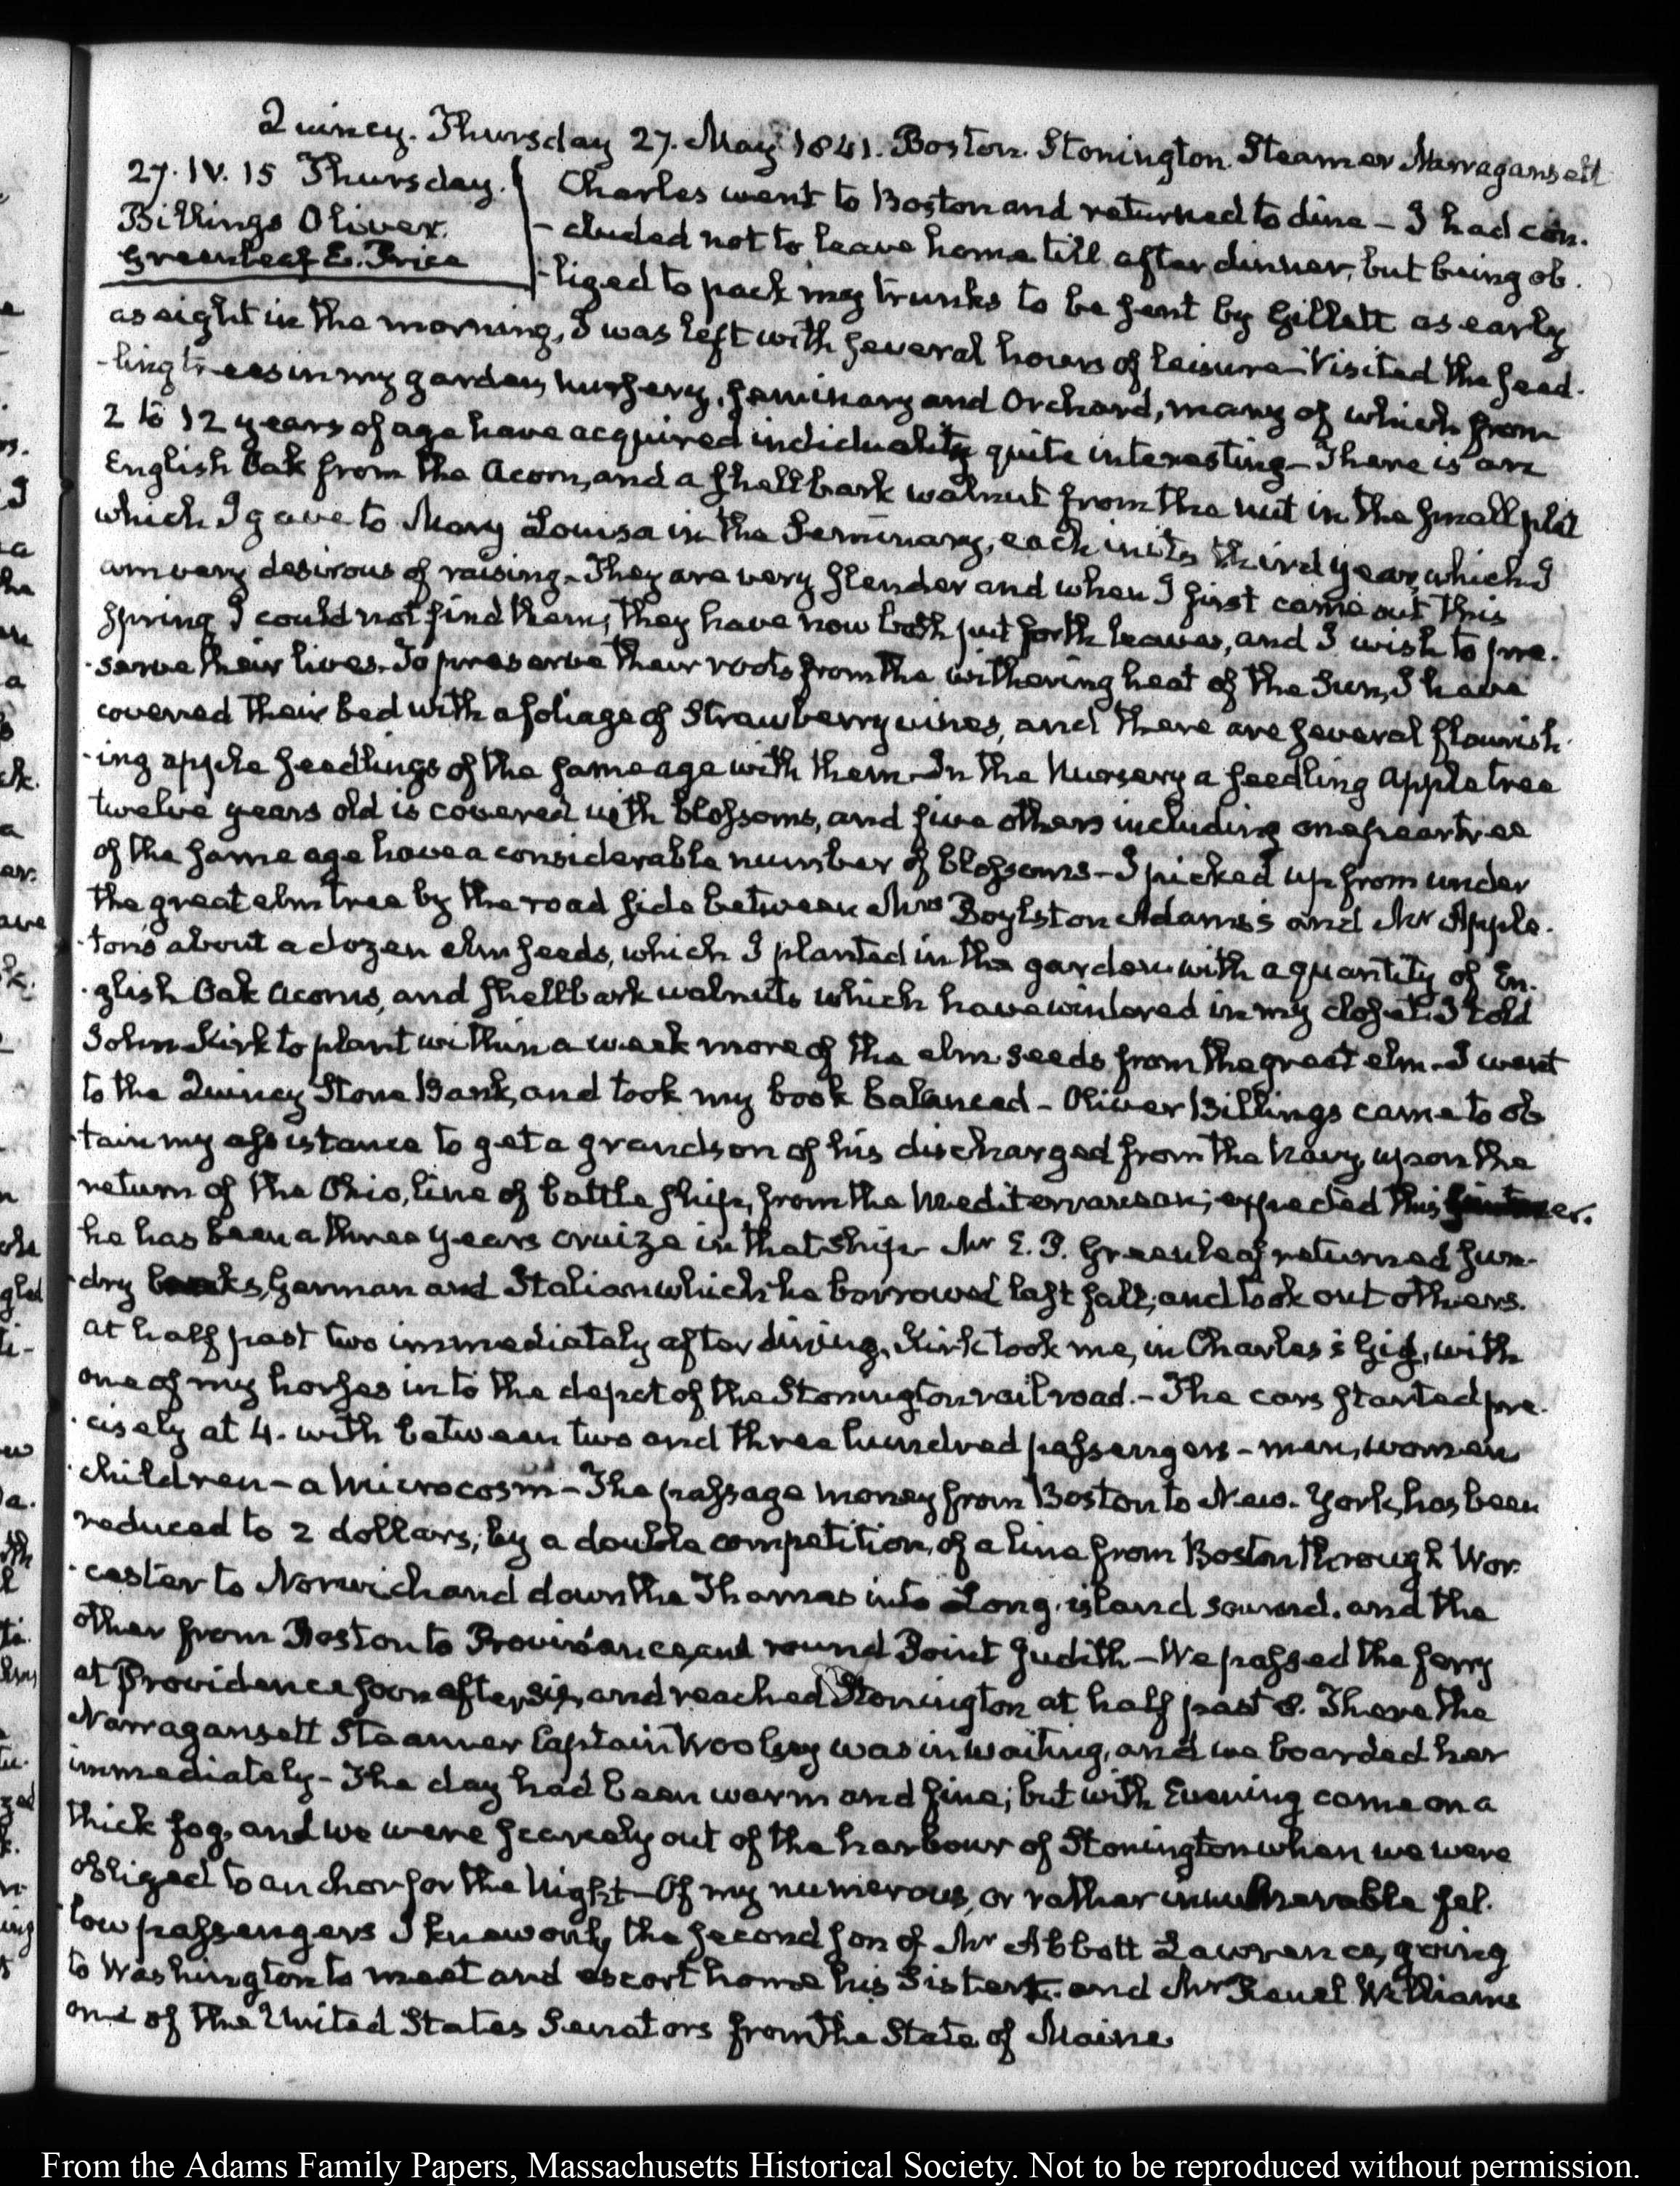 Quincy. Thursday 27. May 1841. Boston. Stonington. Steamer Narragansett
27. IV. 15 Thursday.
Billings Oliver.
Greenleaf E. Price
Charles went to Boston and returned to dine – I had con.
-cluded not to leave home till after dinner, but being ob.
-liged to pack my trunks to be sent by Gillett as early
as eight in the morning, I was left with several hours of leisure – Visited the seed.
-ling trees in my garden, nursery, seminary and Orchard, many of which from
2 to 12 years of age have acquired individuality quite interesting – There is an
English Oak from the Acorn, and a shellbark walnut from the nut in the small plat
which I gave to Mary Louisa in the Seminary, each in its third year, which I
am very desirous of raising – They are very slender and when I first came out this
Spring I could not find them; they have now both put forth leaves, and I wish to pre.
-serve their lives. To preserve their roots from the withering heat of the Sun, I have
covered their bed with a foliage of Strawberry vines, and there are several flourish
-ing apple seedlings of the same age with them – In the Nursery a seedling Apple tree
twelve years old is covered with blossoms, and five others including one pear tree
of the same age have a considerable number of blossoms – I picked up from under
the great elm tree by the road side between Mrs Boylston Adams's and Mr Apple.
-ton's about a dozen elm seeds, which I planted in the garden with a quantity of En.
-glish Oak Acorns, and shellbark walnuts which have wintered in my closet. I told
John Kirk to plant within a week more of the elm seeds from the great elm – I went
to the Quincy Stone Bank, and took my book balanced – Oliver Billings came to ob
-tain my assistance to get a grandson of his discharged from the Navy, upon the
return of the Ohio, line of battle ship, from the Mediterranean; expected this
he has been a three years cruize in that Ship – Mr E. P. Greenleaf returned sun-
-dry books, German and Italian which he borrowed last fall, and took out others.
At half past two immediately after dining, Kirk took me, in Charles's Gig, with
one of my horses in to the depot of the Stonington rail road. – The cars started pre.
-cisely at 4. with between two and three hundred passengers – men, women
children – a Microcosm – The passage money from Boston to New-York, has been
reduced to 2 dollars; by a double competition, of a line from Boston through Wor
-cester to Norwich and down the Thames into Long-island sound. and the
other from Boston to Providence, and round Point Judith – We passed the ferry
at Providence soon after six, and reached Stonington at half past 8. There the
Narragansett Steamer Captain Woolsey was in waiting, and we boarded her
immediately – The day had been warm and fine; but with Evening came on a
thick fog, and we were scarcely out of the harbour of Stonington when we were
obliged to anchor for the Night – Of my numerous, or rather innumerable fel.
-low passengers I knew only the second son of Mr Abbott Lawrence, going
to Washington to meet and escort home his Sister. and Mr Reuel Williams
one of the United States Senators from the State of Maine
From the Adams Family Papers, Massachusetts Historical Society. Not to be reproduced without permission.